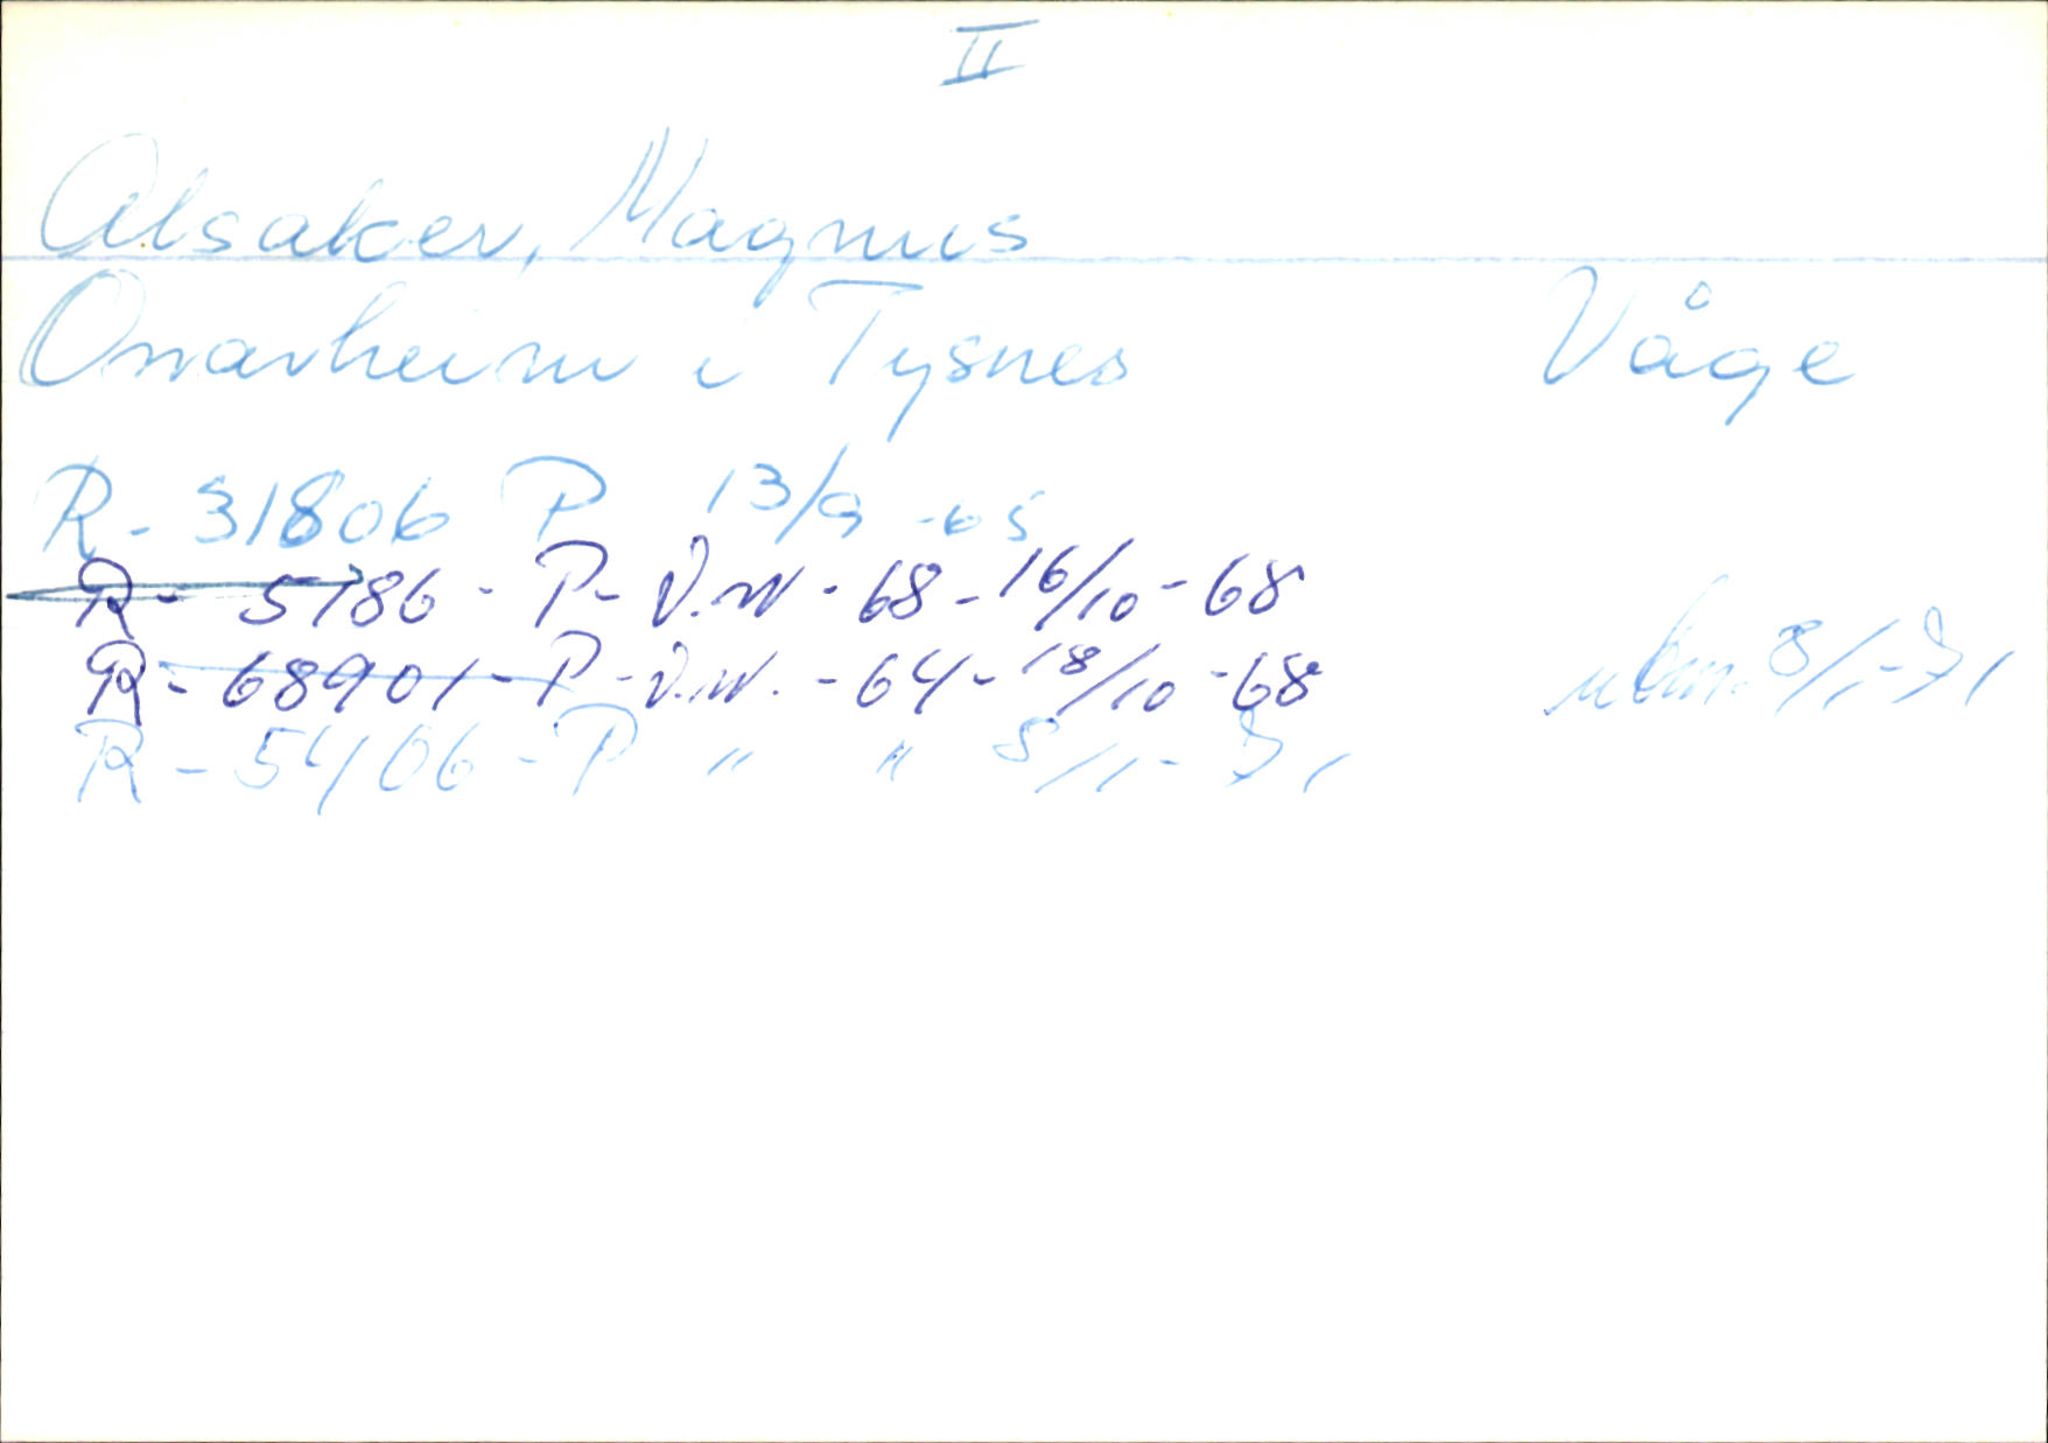 II
Alsaker, Magnus
Onarheim i Tysnes Våge
R - 31806 P 13/9 -65
R - 5786 - P - V.W - 68 - 16/10 - 68
R - 68901 - P - V.W. - 64 - 18/10 - 68 ubm. 8/1-71
R - 5406 - P " " 8/1 - 71